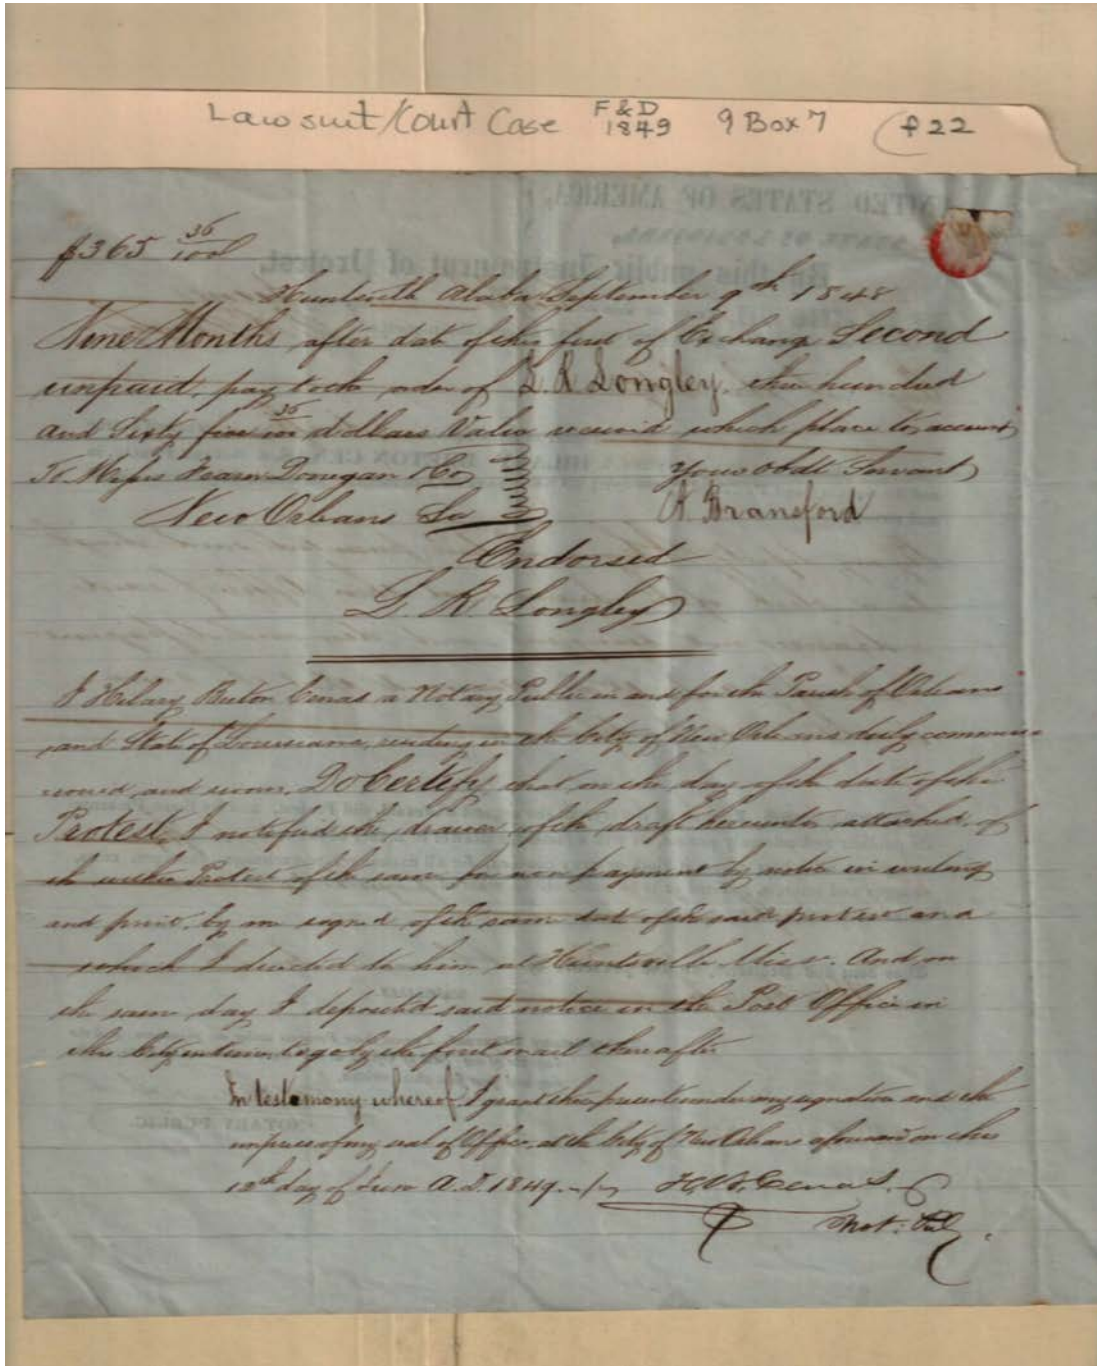 Lawsuit/Court Case F&D 1849 9 Box 7 f22
UNITED STATES OF AMERICA,
STATE OF LOUISIANA,
By this public Instrument of Protest,
$365 36/100
September 9th 1848
Nine Months after date of this first of Exchang Second
unpaid, pay to the order of L R Longley. three hundred
and Sixty five 36/100 dollars Value received which place to account
To Messrs Fearn Donegan & Co Your Obdt Servant
New Orleans La A. Bransford
Endorsed
L. R. Longley
I Hilary Breton Cenas a Notary Public in and for the Parish of Orleans
and State of Louisiana, residing in the City of New Orleans duly commis
sioned and sworn, Do Certify that on the day of the date of the
Protest, I notified the drawer of the draft hereunto attached, of
the within Protest of the same for non payment by notice in writing
and print, by me signed of the same date of the said protest and
which I directed to him at Huntsville Miss. And on
the same day I deposited said notice in the Post Office in
this City to go by the first mail thereafter
In testimony whereof I grant these presents under my signature and the
impress of my seal of Office, at the City of New Orleans aforesaid on this
12th day of June A.D. 1849.
H. B. Cenas.
Not: Pub.
NOTARY PUBLIC.